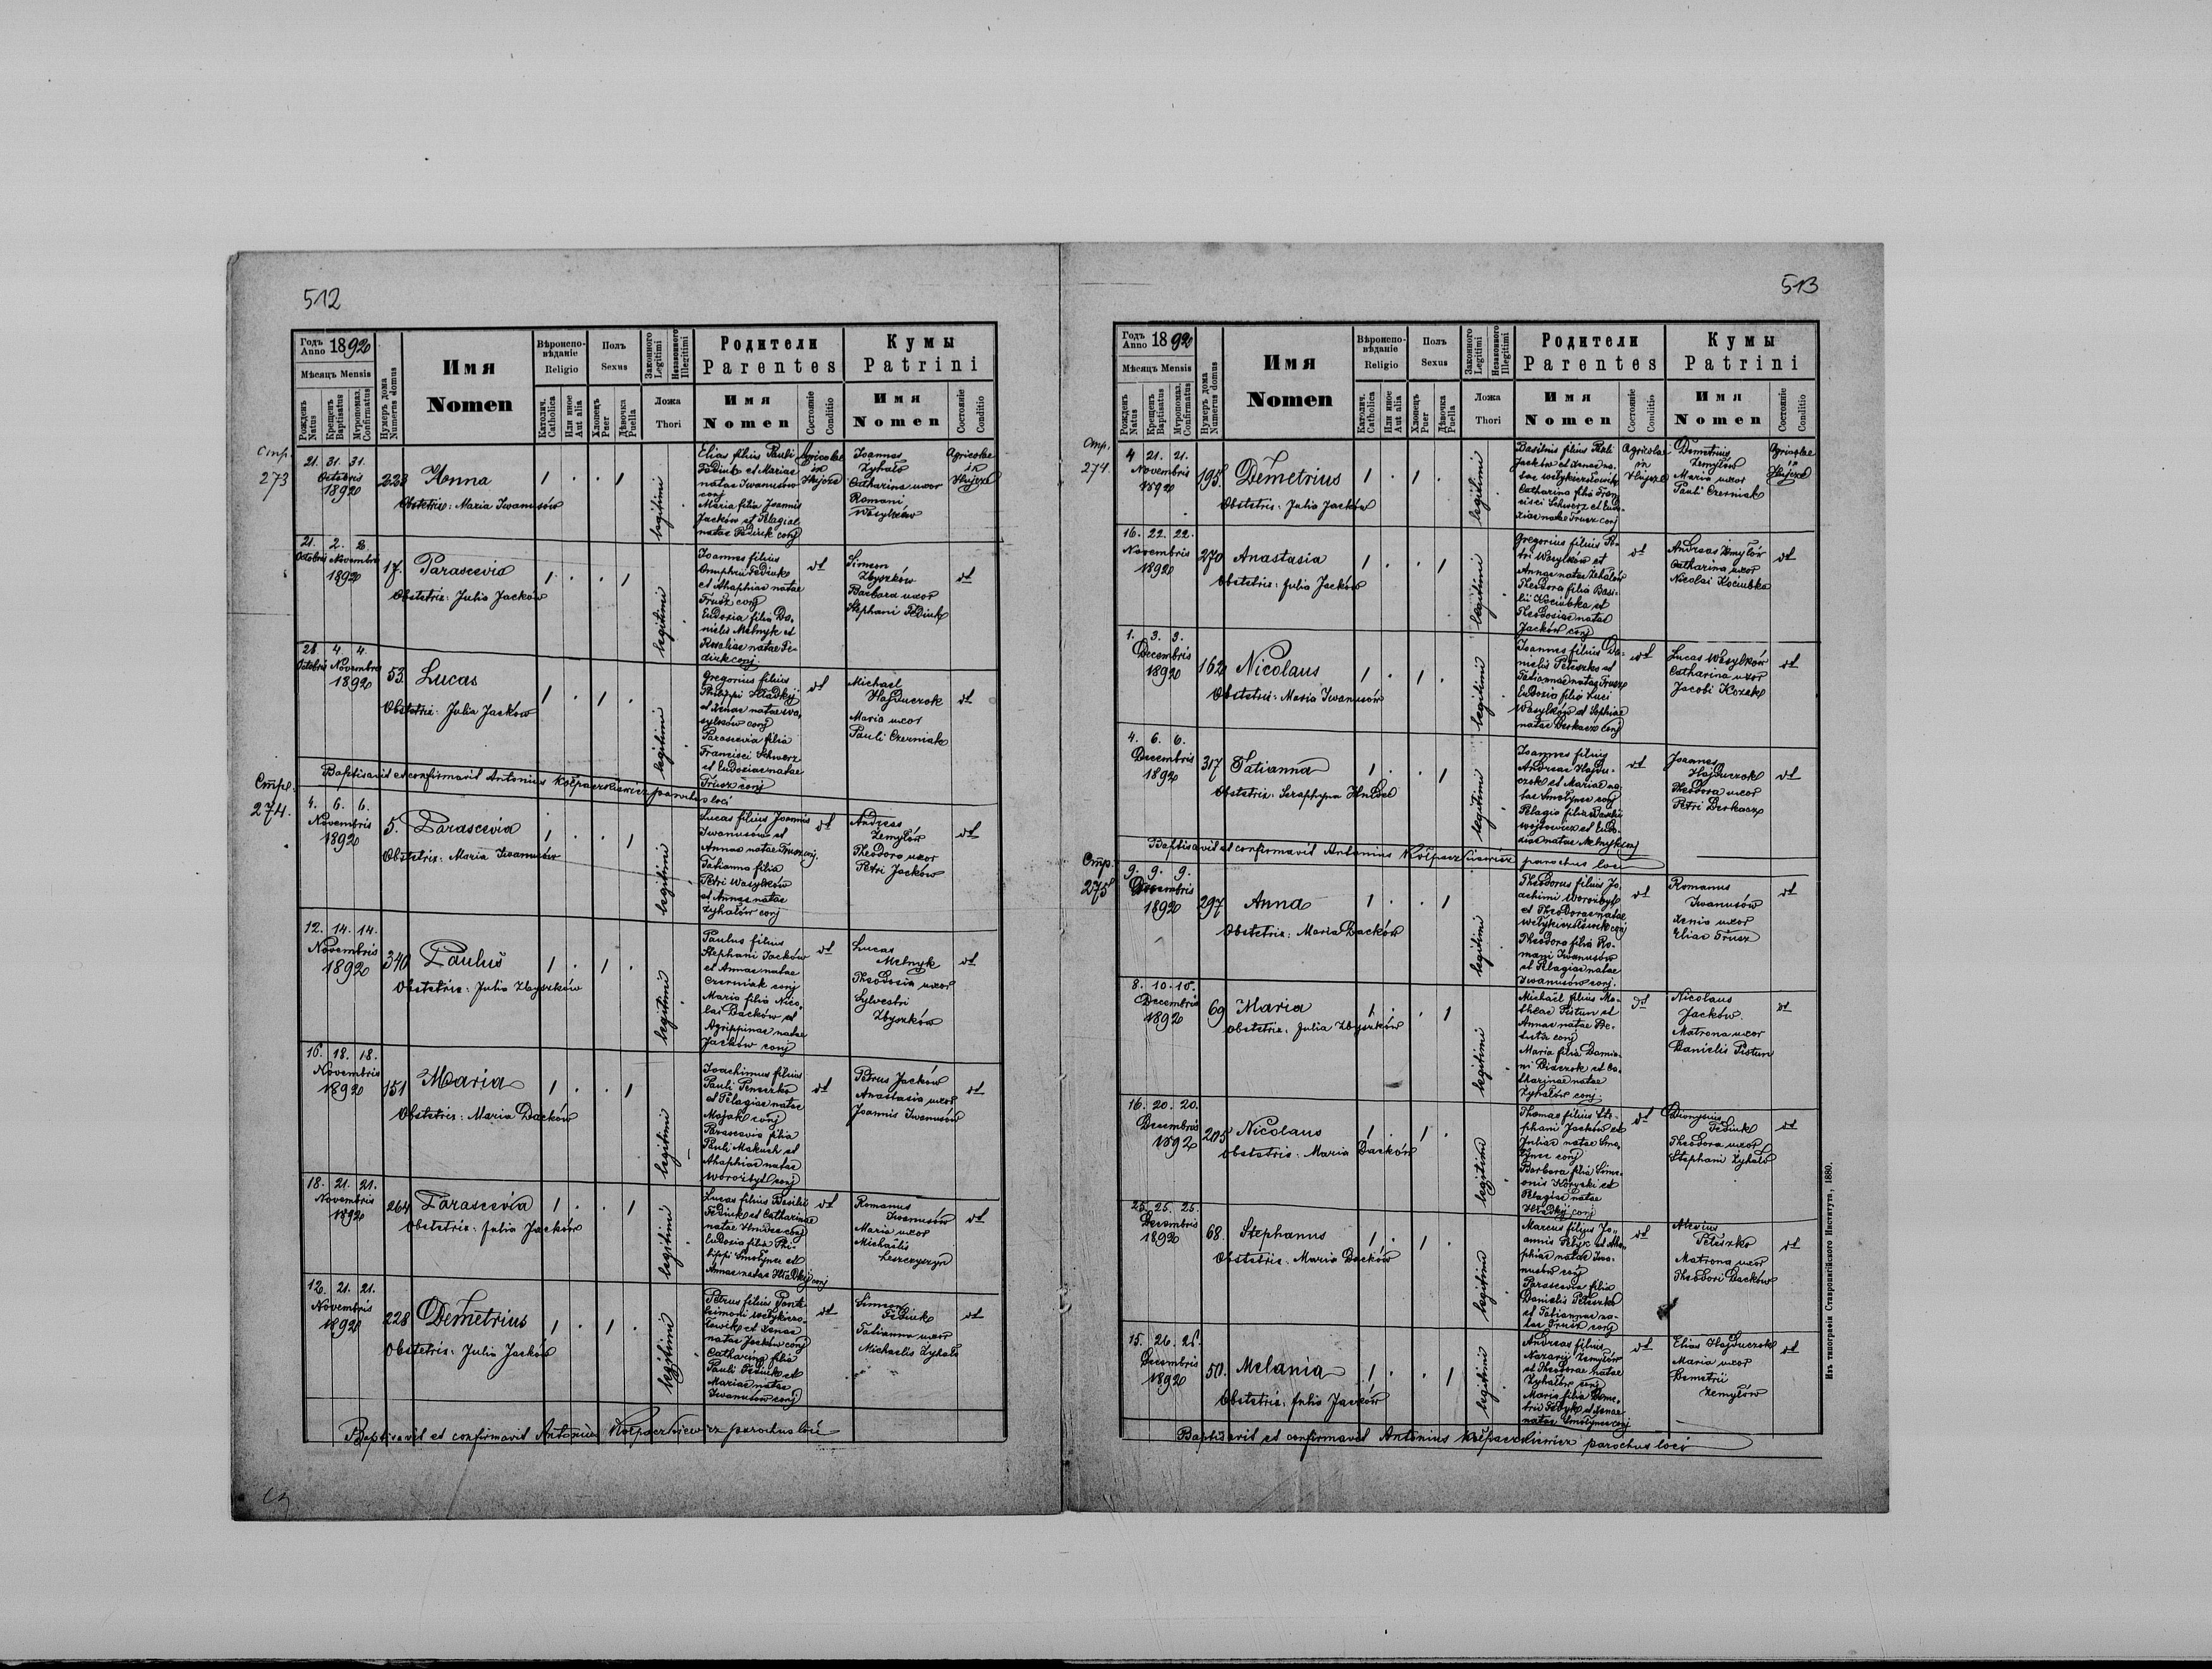 512
Годъ Anno 1892
Мѣсяцъ Mensis
Рожденъ Natus
Крещенъ Baptisatus
Мѵропомаз. Confirmatus
Нумеръ дома Numerus domus
Имя
Nomen
Вѣроиспо-
вѣданіе
Religio
Католич. Catholica
Или иное Aut alia
Полъ
Sexus
Хлопецъ Puer
Дѣвочка Puella
Законного Legitimi
Незаконного Illegitimi
Ложа
Thori
Родители
Parentes
Имя
Nomen
Состояніе Conditio
Кумы
Patrini
Имя
Nomen
Состояніе Conditio
Стр.
273
21. 31. 31.
Octobris
1892
228
Anna
Obstetrix: Maria Iwanusów
1 . . 1
legitimi
Elias filius Pauli
Fediuk et Mariae
natae Iwanusów
conj
Maria filia Joannis
Jacków et Pelagiae
natae Fediuk conj
Agricolae
in
Joannes
Zyhało
Catharina uxor
Romani
Wasylków
Agricolae
in
21. 2. 2.
Octobris Novembris
1892
17.
Parascevia
Obstetrix: Julia Jacków
1 . . 1
legitimi
Joannes filius
Onuphrii Fediuk
et Ahaphiae natae
Trusz conj
Eudoxia filia Da-
nielis Melnyk et
Rosaliae natae Fe-
diuk conj.
dt
Simeon
Zbyszków
Barbara uxor
Stephani Fediuk
dt
4. 4.
Octobris Novembris
1892
53.
Lucas
Obstetrix: Julia Jacków
1 . 1 .
legitimi
Gregorius filius
Philippi Hladkyj
et Xenae natae Wa-
sylków conj
Parascevia filia
Francisci Schwerz
et Eudoxiae natae
Trusz conj
dt
Michael
Hajduczok
Maria uxor
Pauli Czerniak
dt
Baptisavit et confirmavit Antonius Kołpaczkiewicz parochus loci
Стр.
274.
4. 6. 6.
Novembris
1892
5.
Parascevia
Obstetrix: Maria Iwanusów
1 . . 1
legitimi
Lucas filius Joannis
Iwanusów et
Annae natae Trusz conj.
Tatianna filia
Petri Wasylków
et Annae natae
Zyhałów conj
dt
Andreas
Zemyłów
Theodora uxor
Petri Jacków
dt
12. 14. 14.
Novembris
1892
340
Paulus
Obstetrix: Julia Zbyszków
1 . 1 .
legitimi
Paulus filius
Stephani Jacków
et Annae natae
Czerniak conj
Maria filia Nico-
lai Dacków et
Agrippinae natae
Jacków conj
dt
Lucas
Melnyk
Theodosia uxor
Sylvestri
Zbyszków
dt
16. 18. 18.
Novembris
1892
151
Maria
Obstetrix: Maria Dacków
1 . . 1
legitimi
Joachimus filius
Pauli
et Pelagiae natae
Majak conj
Parascevia filia
Pauli Makuch et
Ahaphiae natae
Worożbyt conj
dt
Petrus Jacków
Anastasia uxor
Joannis Iwanusów
dt
18. 21. 21.
Novembris
1892
264
Parascevia
Obstetrix: Julia Jacków
1 . . 1
legitimi
Lucas filius Basilii
Fediuk et Catharinae
natae Hnidec conj
Eudoxia filia Phi-
lippi Smołynec et
Annae natae Hladkyj conj
dt
Romanus
Iwanusów
Maria uxor
Michaëlis
Leszczyszyn
dt
12. 21. 21.
Novembris
1892
228
Demetrius
Obstetrix: Julia Jacków
1 . 1 .
legitimi
Petrus filius Pante-
leimoni Wełykiero-
łowik et Xenae
natae Jacków conj
Catharina filia
Pauli Fediuk et
Mariae natae
Iwanusów conj
dt
Simeon
Fediuk
Tatianna uxor
Michaëlis Zyhało
dt
Baptisavit et confirmavit Antonius Kołpaczkiewicz parochus loci
513
Годъ Anno 1892
Мѣсяцъ Mensis
Рожденъ Natus
Крещенъ Baptisatus
Мѵропомаз. Confirmatus
Нумеръ дома Numerus domus
Имя
Nomen
Вѣроиспо-
вѣданіе
Religio
Католич. Catholica
Или иное Aut alia
Полъ
Sexus
Хлопецъ Puer
Дѣвочка Puella
Законного Legitimi
Незаконного Illegitimi
Ложа
Thori
Родители
Parentes
Имя
Nomen
Состояніе Conditio
Кумы
Patrini
Имя
Nomen
Состояніе Conditio
Стр.
274.
4 21. 21.
Novembris
1892
195.
Demetrius
Obstetrix: Julia Jacków
1 . 1 .
legitimi
Basilius filius
Jacków et Xenae na-
tae
Catharina filia Fran-
cisci Schwerz et Eudo-
xiae natae Trusz conj
Agricolae
in
Demetrius
Zemyłów
Maria uxor
Pauli Czerniak
Agricolae
in
16. 22. 22.
Novembris
1892
270
Anastasia
Obstetrix: Julia Jacków
1 . . 1
legitimi
Gregorius filius Pe-
tri Wasylków et
Annae natae Zyhałów
Theodora filia Basi-
lii Kociubka et
Theodosiae natae
Jacków conj
dt
Andreas Zemyłów
Catharina uxor
Nicolai Kociubka
dt
1. 3. 3.
Decembris
1892
162
Nicolaus
Obstetrix: Maria Iwanusów
1 . 1 .
legitimi
Joannes filius Da-
nielis Peteszko et
Tatiannae natae Trusz
Eudoxia filia Luci
Wasylków et Sophiae
natae Derkacz conj
dt
Lucas Wasylków
Catharina uxor
Jacobi Kozak
dt
4. 6. 6.
Decembris
1892
317
Tatianna
Obstetrix: Seraphyna Hnidec
1 . . 1
legitimi
Joannes filius
Andreae Hajdu-
czok et Mariae na-
tae Smołynec conj
Pelagia filia
Wojtowicz et Eudo-
xiae natae Melnyk conj
dt
Joannes
Hajduczok
Theodora uxor
Petri Derkacz
dt
Baptisavit et confirmavit Antonius Kołpaczkiewicz parochus loci
Стр.
275
9. 9. 9.
Decembris
1892
297
Anna
Obstetrix: Maria Dacków
1 . . 1
legitimi
Theodorus filius Jo-
achimi Worożbyt
et Theodorae natae
conj
Theodora filia Ro-
mani Iwanusów
et Pelagiae natae
Iwanusów conj.
dt
Romanus
Iwanusów
Xenia uxor
Eliae Trusz
dt
8. 10. 10.
Decembris
1892
69
Maria
Obstetrix: Julia Zbyszków
1 . . 1
legitimi
Michaël filius Ma-
theae Pistun et
Annae natae
conj
Maria filia Damia-
ni Diaczok et Ca-
tharinae natae
Zyhałów conj.
dt
Nicolaus
Jacków.
Matrona uxor
Danielis Pistun
dt
16. 20. 20.
Decembris
1892
205
Nicolaus
Obstetrix: Maria Dacków
1 . 1 .
legitimi
Thomas filius Ste-
phani Jacków et
Juliae natae Smo-
łynec conj
Barbara filia Sime-
onis et
Pelagiae natae
Hladkyj conj
dt
Dionysius
Fediuk
Theodora uxor
Stephani Zyhało
dt
25. 25. 25.
Decembris
1892
68.
Stephanus
Obstetrix: Maria Dacków
1 . 1 .
legitimi
Marcus filius Jo-
annis et Aha-
phiae natae Iwa-
nusów conj
Parascevia filia
Danielis Peteszko
et Tatiannae na-
tae Trusz conj
dt
Alexius
Peteszko
Matrona uxor
Theodori Dacków
dt
15. 26. 26.
Decembris
1892
50.
Melania
Obstetrix: Julia Jacków
1 . . 1
legitimi
Andreas filius
Nazarij Zemyłów
et Theodorae natae
Zyhałów conj
Maria filia Deme-
trii et Xenae
natae Smołynec conj
dt
Elias Hajduczok
Maria uxor
Demetrii
Zemyłów
dt
Baptisavit et confirmavit Antonius Kołpaczkiewicz parochus loci
Изъ типографіи Ставропигійского Института, 1880.